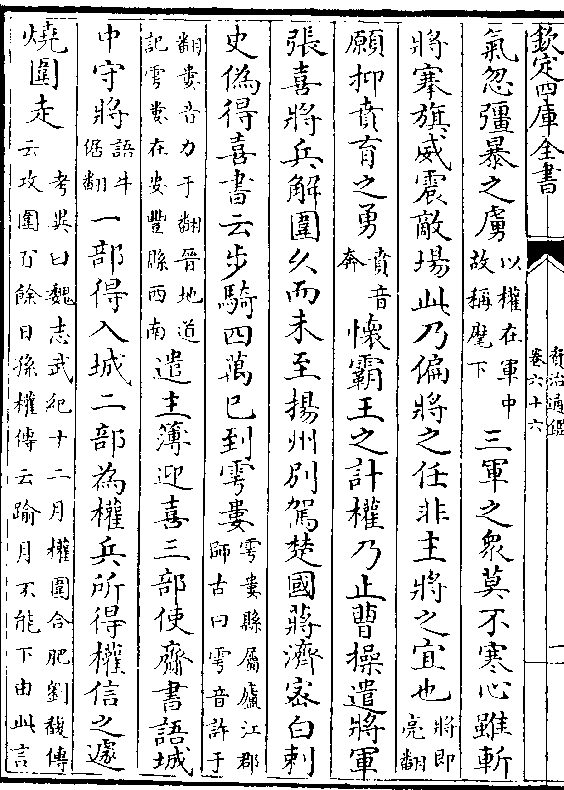 欽定四庫全書
資治通鑑
卷六十六
氣忽彊暴之虜以權在軍中故稱麾下三軍之衆莫不寒心雖斬
將搴旗威震敵場此乃偏將之任非主將之宜也將即亮翻
願抑賁育之勇賁音奔懷霸王之計權乃止曹操遣將軍
張喜將兵解圍久而未至揚州別駕楚國蔣濟密白刺
史偽得喜書云步騎四萬已到雩婁雩婁縣屬廬江郡師古曰雩音許于
翻婁音力于翻晉地道記雩婁在安豐縣西南遣主簿迎喜三部使齎書語城
中守將語牛倨翻一部得入城二部為權兵所得權信之遽
燒圍走考異曰魏志武紀十二月權圍合肥劉馥傳云攻圍百餘日孫權傳云踰月不能下由此言